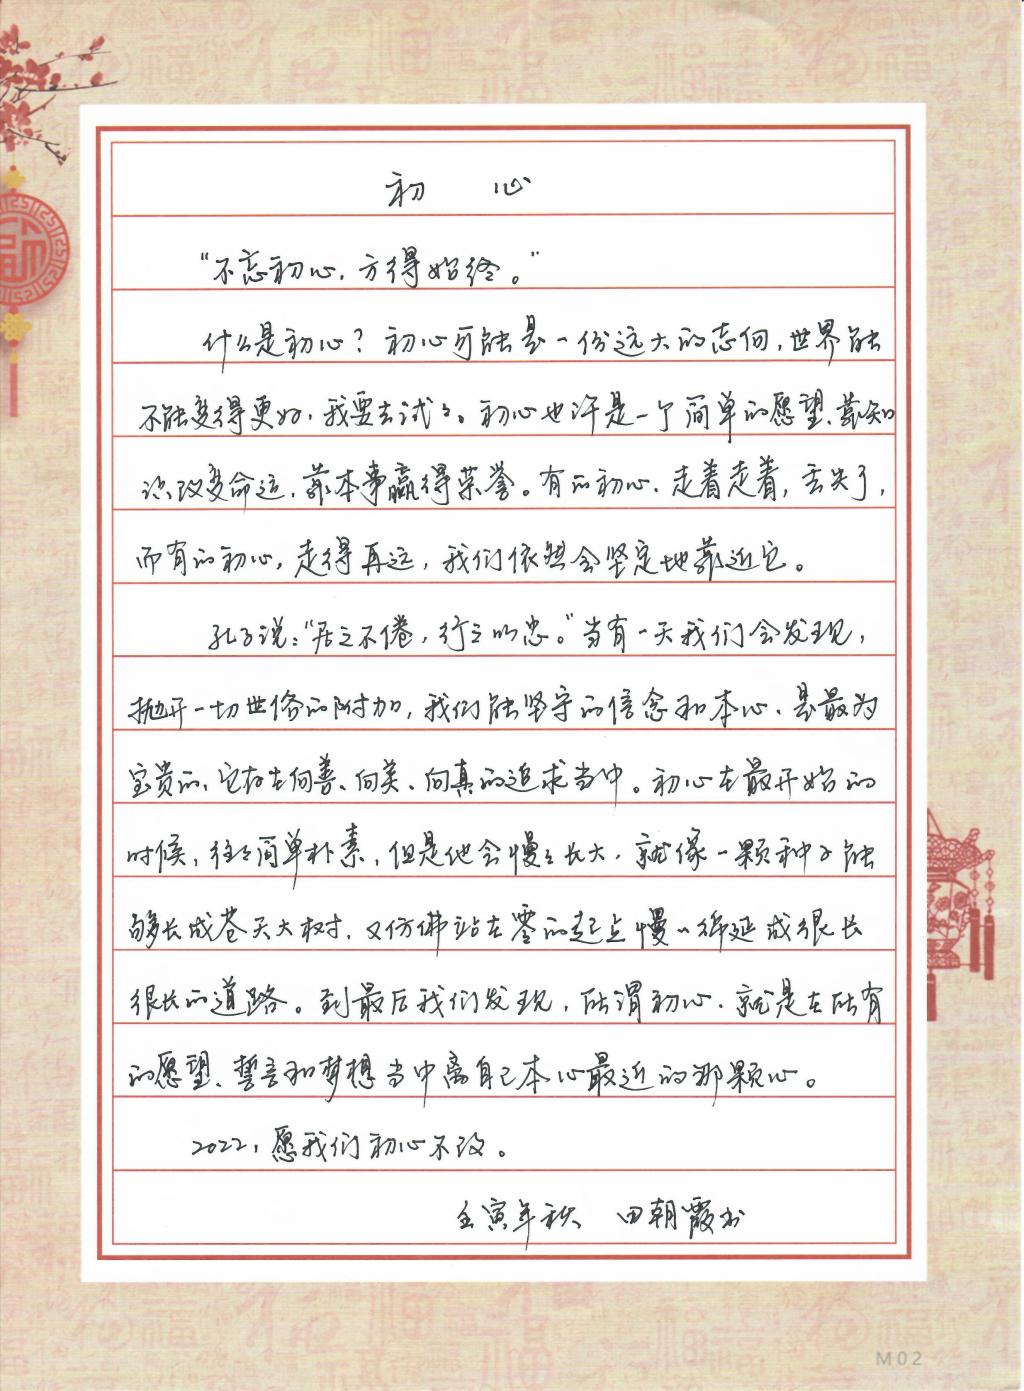 初 心
“不忘初心，方得始终。”
什么是初心？初心可能是一份远大的志向，世界能
不能变得更好，我要去试々。初心也许是一个简单的愿望、靠知
识改变命运，靠本事赢得荣誉。有的初心，走着走着，丢失了，
而有的初心，走得再远，我们依然会坚定地靠近它。
孔子说：“居之不倦，行之以忠。”当有一天我们会发现，
抛开一切世俗的附加，我们能坚守的信念和本心、是最为
宝贵的，它存在向善、向美、向真的追求当中。初心在最开始的
时候，往々简单朴素，但是他会慢々长大，就像一颗种子能
够长成苍天大树，又仿佛站在零的起点慢々绵延成很长
很长的道路。到最后我们发现，所谓初心，就是在所有
的愿望、誓言和梦想当中离自己本心最近的那颗心。
2022，愿我们初心不改。
壬寅年秋 田朝霞书
M02